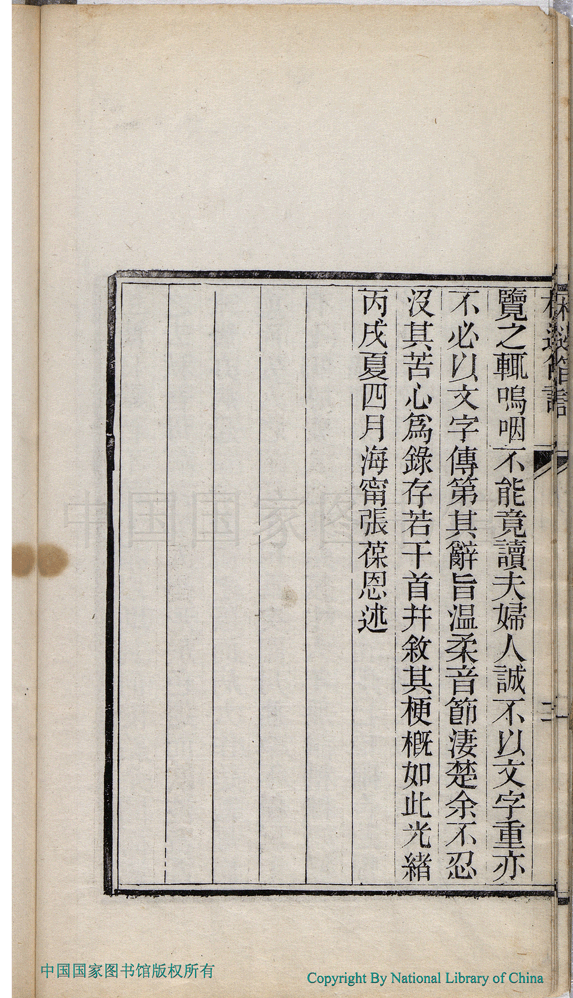 覽之輒嗚咽不能竟讀夫婦人誠不以文字重亦
不必以文字傳第其辭旨温柔音節淒楚余不忍
沒其苦心爲錄存若干首幷敘其梗槪如此光緖
丙戌夏四月海甯張葆恩述
二
中国国家图
中国国家图书馆版权所有
Copyright By National Library of China